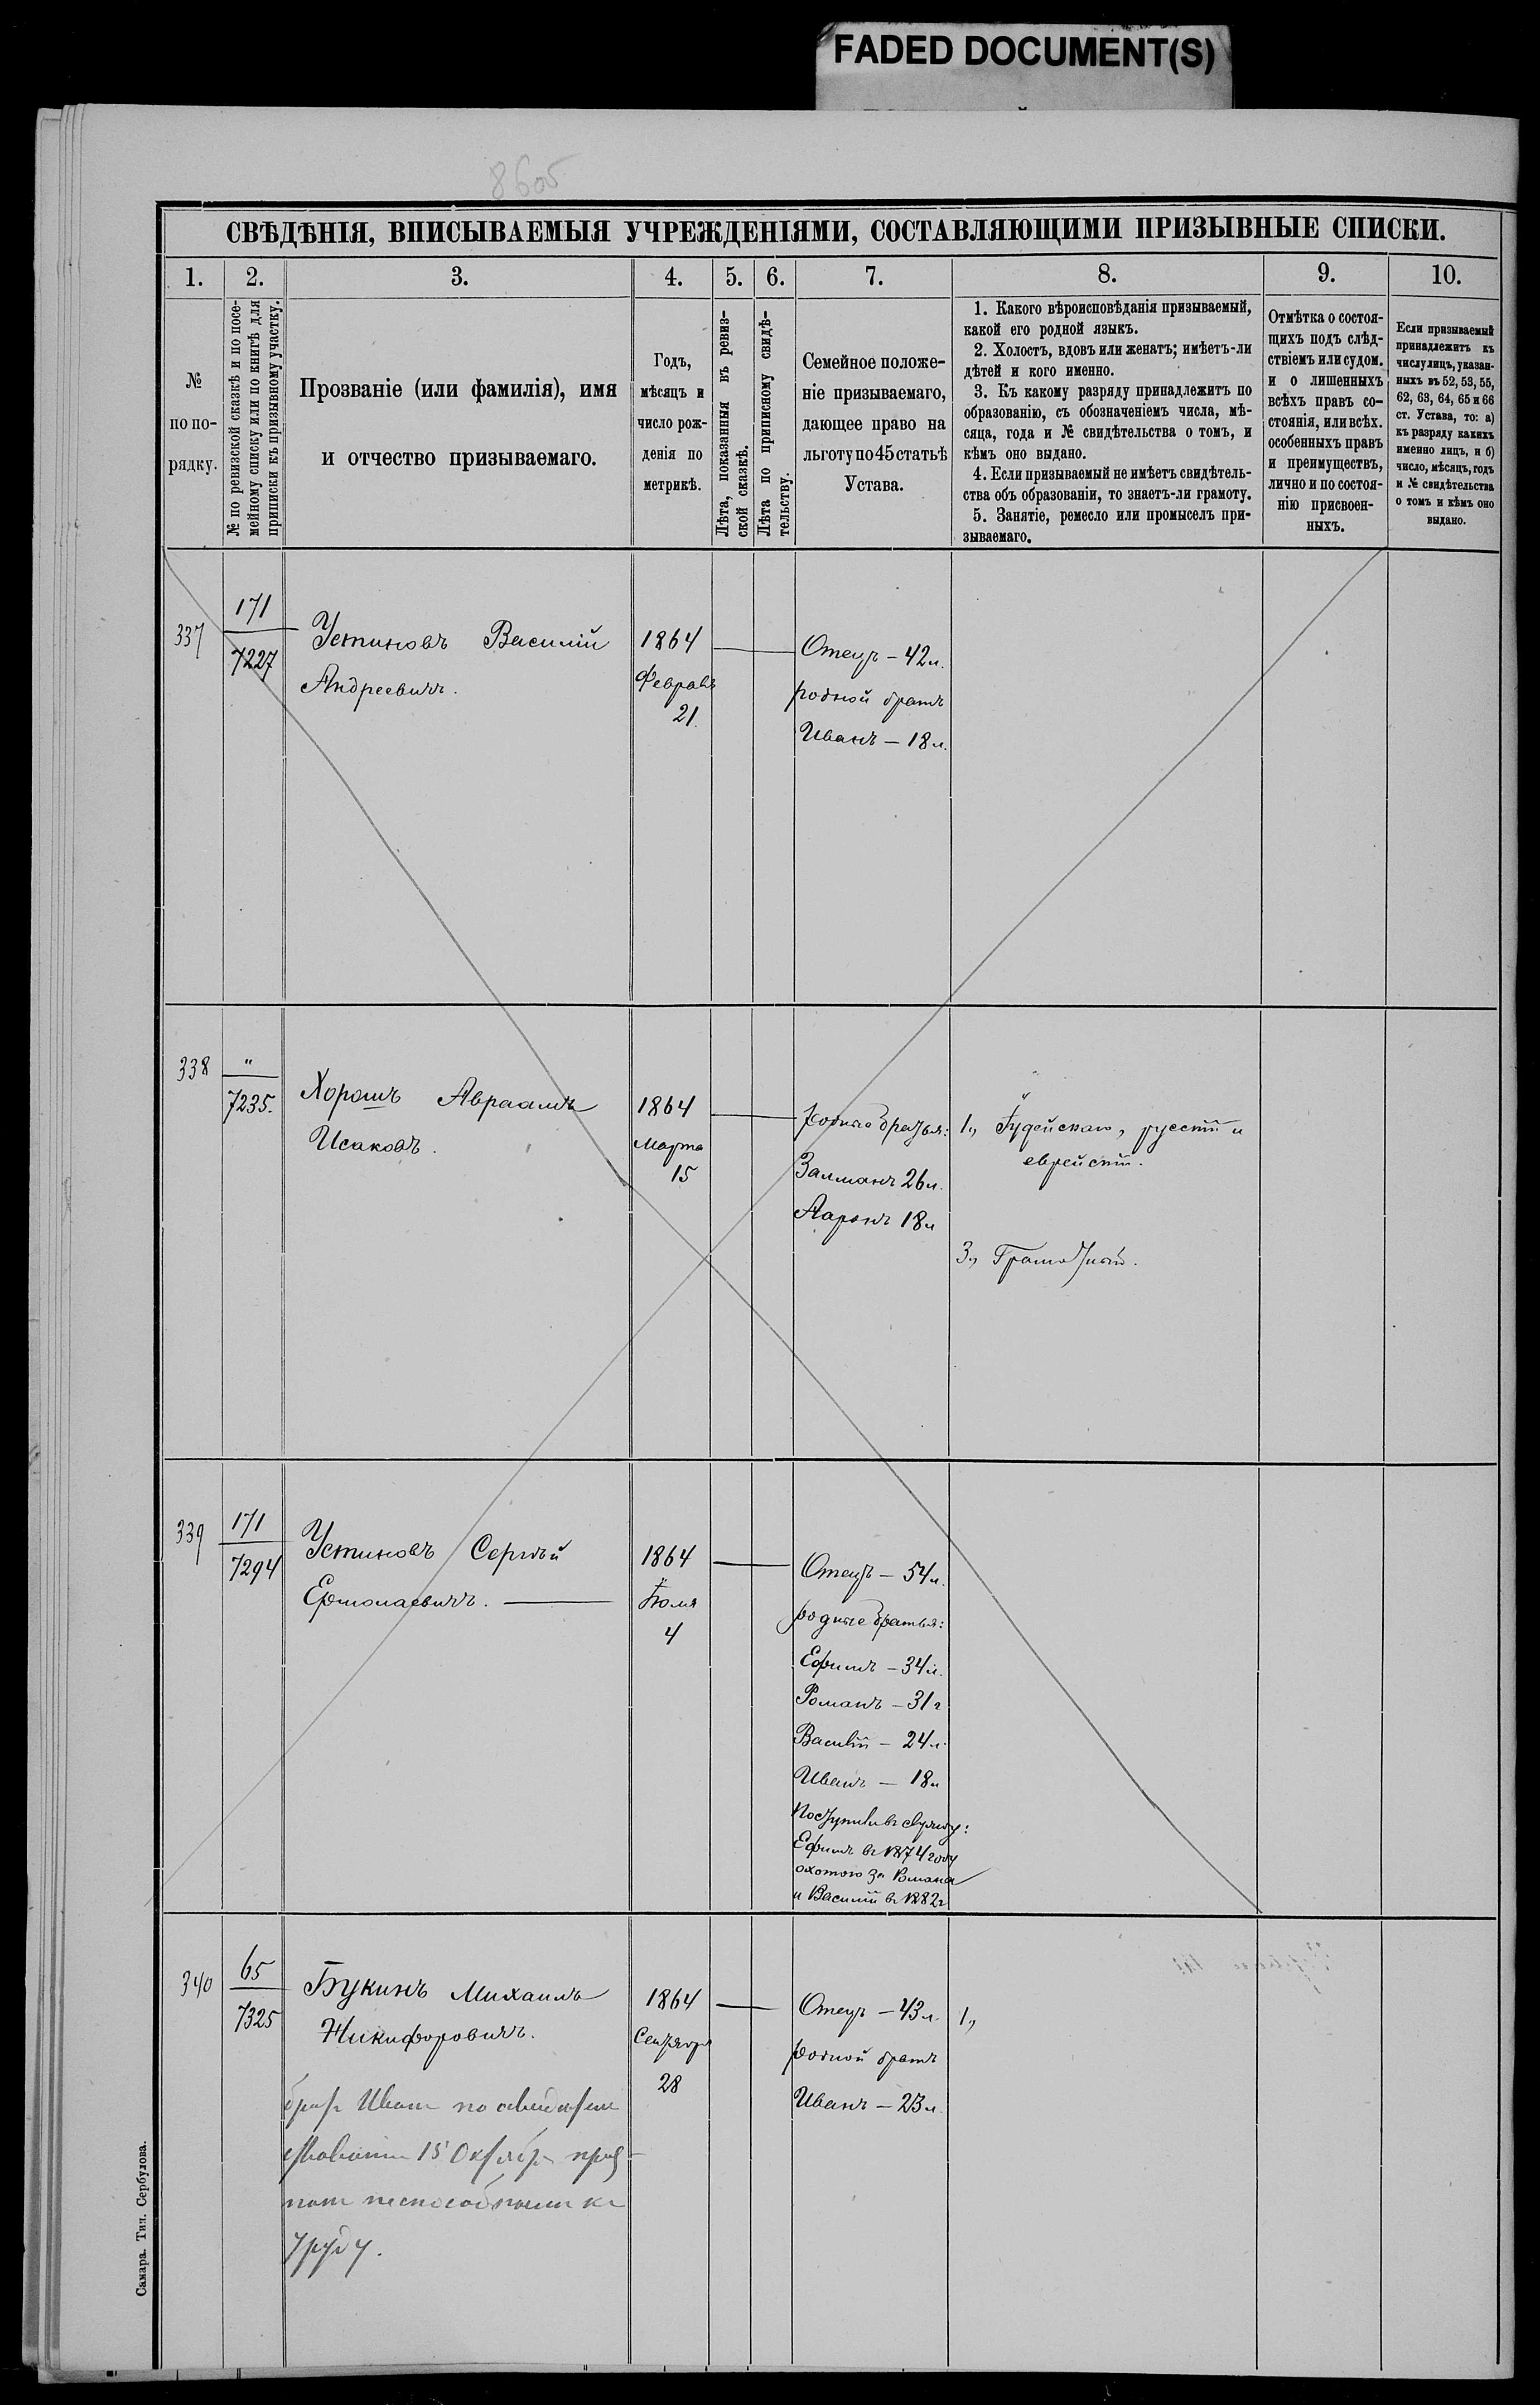 FADED DOCUMENT(S)
8605
СВѢДѢНІЯ, ВПИСЫВАЕМЫЯ УЧРЕЖДЕНІЯМИ, СОСТАВЛЯЮЩИМИ ПРИЗЫВНЫЕ СПИСКИ.
1.
2.
3.
4.
5.
6.
7.
8.
9.
10.
№
по по-
рядку.
№ по ревизской сказкѣ и по посе-
мейному списку или по книгѣ для
приписки къ призывному участку.
Прозваніе (или фамилія), имя
и отчество призываемаго.
Годъ,
мѣсяцъ и
число рож-
денія по
метрикѣ.
Лѣта, показанныя въ ревиз-
ской сказкѣ.
Лѣта по приписному свидѣ-
тельству.
Семейное положе-
ніе призываемаго,
дающее право на
льготу по 45 статьѣ
Устава.
1. Какого вѣроисповѣданія призываемый,
какой его родной языкъ.
2. Холостъ, вдовъ или женатъ; имѣетъ-ли
дѣтей и кого именно.
3. Къ какому разряду принадлежитъ по
образованію, съ обозначеніемъ числа, мѣ-
сяца, года и № свидѣтельства о томъ, и
кѣмъ оно выдано.
4. Если призываемый не имѣетъ свидѣтель-
ства объ образованіи, то знаетъ-ли грамоту.
5. Занятіе, ремесло или промыселъ при-
зываемаго.
Отмѣтка о состоя-
щихъ подъ слѣд-
ствіемъ или судом.
и о лишенныхъ
всѣхъ правъ со-
стоянія, или всѣх.
особенныхъ правъ
и преимуществъ,
лично и по состоя-
нію присвоен-
ныхъ.
Если призываемый
принадлежитъ къ
числу лицъ, указан-
ныхъ въ 52, 53, 55,
62, 63, 64, 65 и 66
ст. Устава, то: а)
къ разряду какихъ
именно лицъ, и б)
число, мѣсяцъ, годъ
и № свидѣтельства
о томъ и кѣмъ оно
выдано.
337
171
7227
Устиновъ Василій
Андреевичъ.
1864
Февраля
21.
Отецъ - 42 л.
родной братъ
Иванъ - 18 л.
338
"
7235.
Хорошъ Авраамъ
Исаковъ.
1864
Марта
15
родные братья:
Залманъ 26 л.
Ааронъ 18 л
1, Іудейскаго, русскій и
еврейскій.
3, Грамотный.
339
171
7294
Устиновъ Сергѣй
Ермолаевичъ.
1864
Іюля
4
Отецъ - 54 л.
родные братья:
Ефимъ - 34 л.
Романъ - 31 г
Василій - 24 л.
Иванъ - 18 л
Поступили въ службу:
Ефимъ въ 1874 году
охотою за Романа
и Василій въ 1882 г
340
65
7325
Букинъ Михаилъ
Никифоровичъ.
1864
Сентября
28
Отецъ - 43 л.
родной братъ
Иванъ - 23 л.
1,
братъ Иванъ по освидѣтель
ствованіи 15 Октября приз-
нанъ неспособнымъ къ
труду.
Самара. Тип. Сербулова.